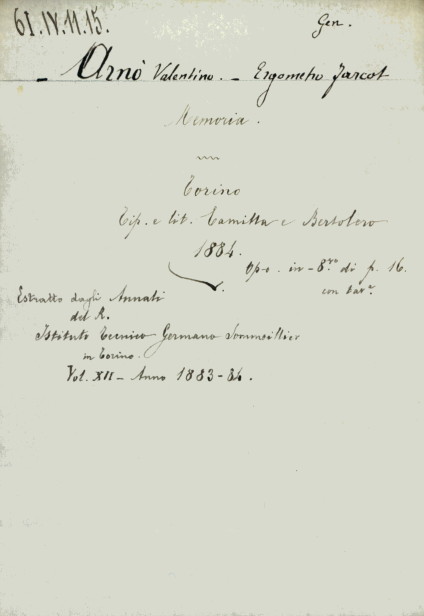 61.IV.11.15.
Gen.
- Arnò Valentino. - Ergometro Jarcot
Memoria.
Torino
Tip. e lit. Camilla e Bertolero
1884.
Op.o in-8.vo di p. 16.
con tav.e
Estratto dagli Annali
del R.
Istituto Tecnico Germano Sommeillier
in Torino.
Vol. XII - Anno 1883-84.